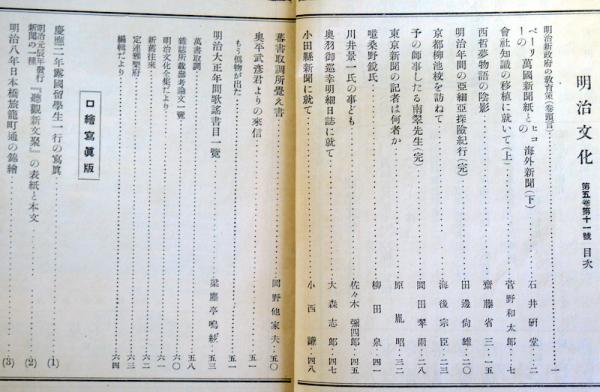 明治文化 第五卷第十一號 目次
明治新政府の敎育策(卷頭言)……一
ベーリーの 萬國新聞紙との ヒコ 海外新聞(下)……石井硏堂……二
會社知識の移植に就いて(上)……菅野和太郞……七
西哲夢物語の陰影……齋藤省三……一五
明治年間の亞細亞探險紀行(完)……田邊尙雄……二〇
京都柳池校を訪ねて……海後宗臣……二三
予の師事したる南翠先生(完)……岡田翠雨……二八
東京新聞の記者は何者か……原胤昭……三二
噌桑野銳氏……柳田泉……四一
川井景一氏の事ども……佐々木彌四郞……四五
奧羽御巡幸明細日誌に就て……大森志郞……四七
小田縣新聞に就て……小西謙……四八
蕃書取調所覺え書……岡野他家夫……五〇
奧平武彥君よりの來信……五一
もう僞物が出た……五一
明治大正年間歌謠書目一覽……梁塵亭鳴絃……五三
萬書取調……五八
雜誌所載參考論文一覽……六〇
明治文化全集だより……六一
新舊往來……六二
定連雜聖府……六三
編輯だより……六四
口繪寫眞版
慶應二年露國留學生一行の寫眞……(1)
明治元辰年發行新聞の一種『聽觀新文聚』の表紙と本文……(2)
明治八年日本橋旅籠町通の錦繪……(3)